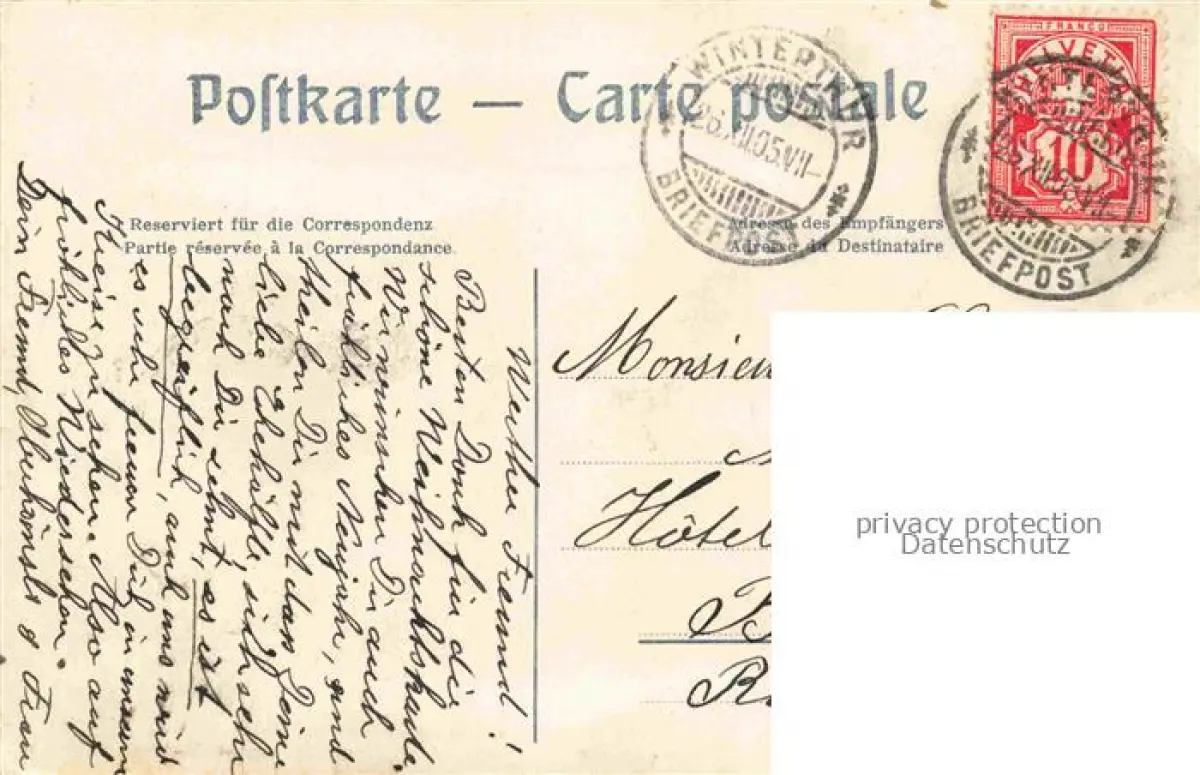 Postkarte — Carte postale
Reserviert für die Correspondenz
Partie réservée à la Correspondance.
Adresse des Empfängers
Adresse du Destinataire
FRANCO
HELVETIA
10
WINTERTHUR
26.XII.05.VII–
BRIEFPOST
WINTERTHUR
26.XII.05.VII
BRIEFPOST
Werther Freund!
Besten Dank für die
schöne Weihnachtskarte.
Wir wünschen Dir auch
fröhliches Neujahr, und
theilen Dir mit dass Deine
liebe Ehehälfte, sich sehr
nach Dir sehnt, es ist
begreiflich, auch uns wird
es sehr freuen Dich in unserm
Kreise zu sehen. Also auf
fröhliches Wiedersehen.
Dein Freund, & Frau
Monsieu
Hôtel
privacy protection
Datenschutz